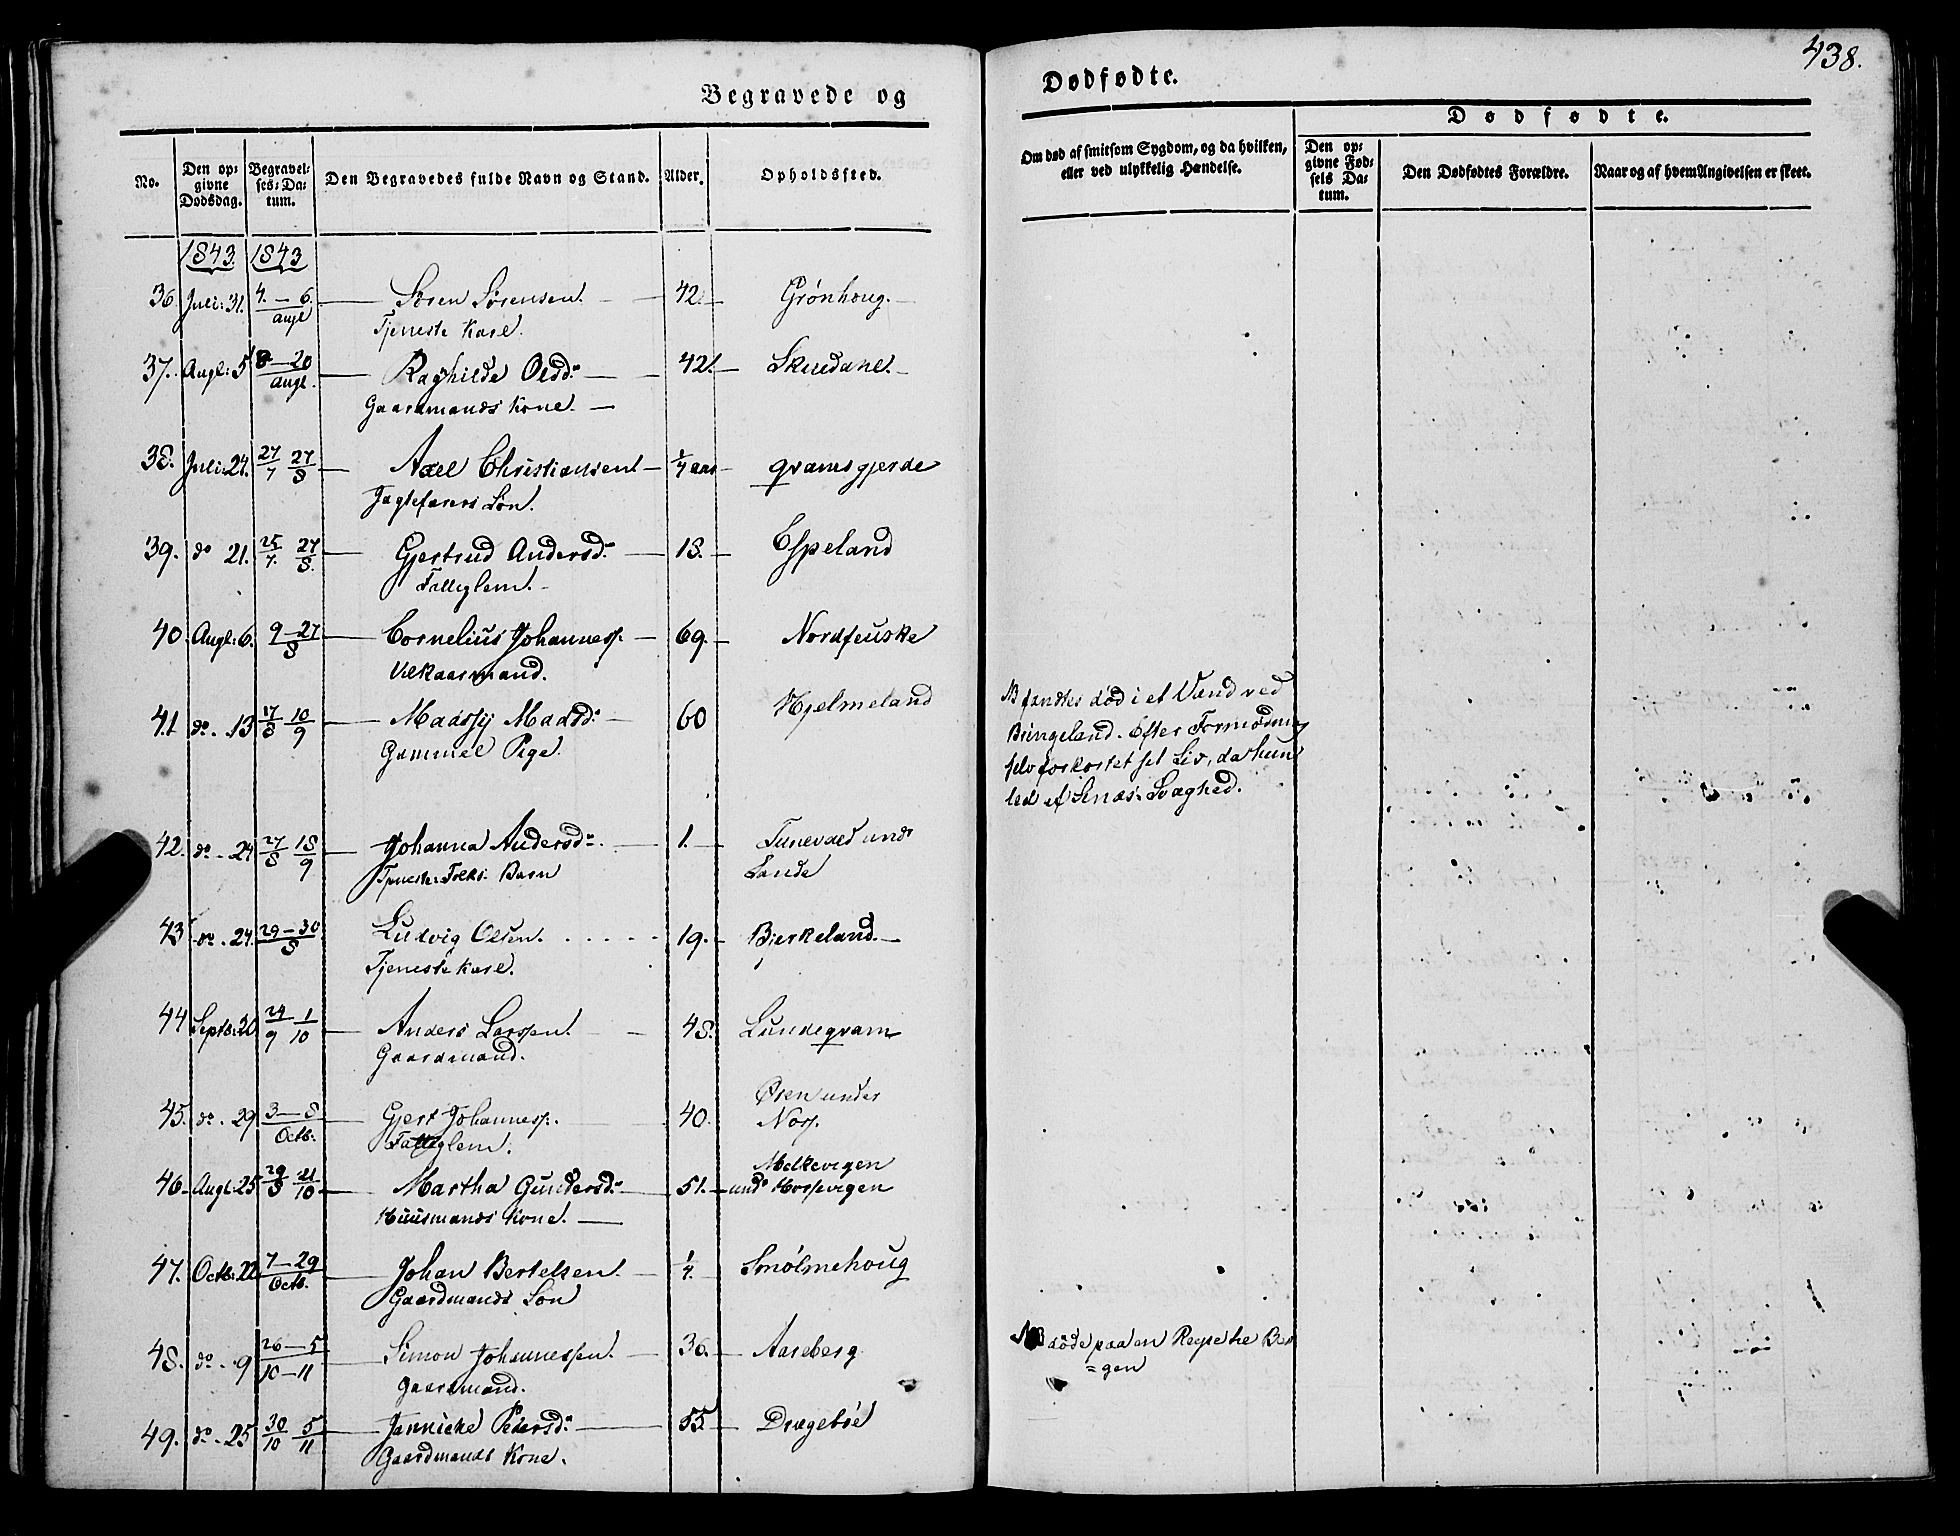 438.
Begravede og
Dødfødte.
No. Den opgivne Dødsdag. Begravelses-Datum. Den Begravedes fulde Navn og Stand. Alder. Opholdssted.
Om død af smitsom Sygdom, og da hvilken, eller ved ulykkelig Hændelse.
Dødfødte.
Den opgivne Fødsels Datum. Den Dødfødtes Forældre. Naar og af hvem Angivelsen er skeet.
1843. 1843
36 Juli: 31. 4. – 6. Augl Søren Sørensen. 42. Grønhoug.
Tjeneste Karl.
37. Augl: 5 8–20 Augl. Raghilde Olsd: 42. Skuedahl.
Gaardmands Kone.
38. Juli: 24. 27/7 27/8 Axel Christiansen 1/4 aar gramsgjerde
Søn.
39. do 21. 25/7. 27/8. Gjertrud Andersd: 18. Espeland
Fattiglem.
40. Augl: 6. 9–27/8 Cornelius Johanness. 69. Nordfeuske
Vilkaarmand.
41. do. 13 17/8 10/9 Madssij Madsd: 60 Hjelmeland
Gammel Pige.
NB fandtes død i et Vand ved
Bungeland. Efter Formodning
selv forkortet sit Liv, da hun
led af Sinds-Svaghed.
42. do. 24 27/8 18/9 Johanna Andersd: 1. und
Tjeneste Folks Barn Lande
43 do. 24. 29–30/8 Ludvig Olsen. 19. Bjerkeland.
Tjeneste Karl.
44 Septb: 20 24/9 1/10 Anders Larssen. 48. Lundegram
Gaardmand.
45. do. 29 3–8 Octb. Gjert Johanness: 40. Øren under
Fattiglem. Nors.
46 Augl: 25 29/8 21/10 Martha Gundersd: 51. Melkevigen
und Horsevigen
Huusmands Kone.
47. Octb: 22 7–29 Octb. Johan Bertelsen. 1/4. Smølmehoug
Gaardmands Søn
48. do. 9 26–5 10–11 Simon Johannessen. 36. Aareberg
Gaardmand.
NB døde paa en Reyse til Ber
=gen
49. do. 25 30/10 5/11 Jannicke Pedersd: 55. Drægebøe
Gaardmands Kone.